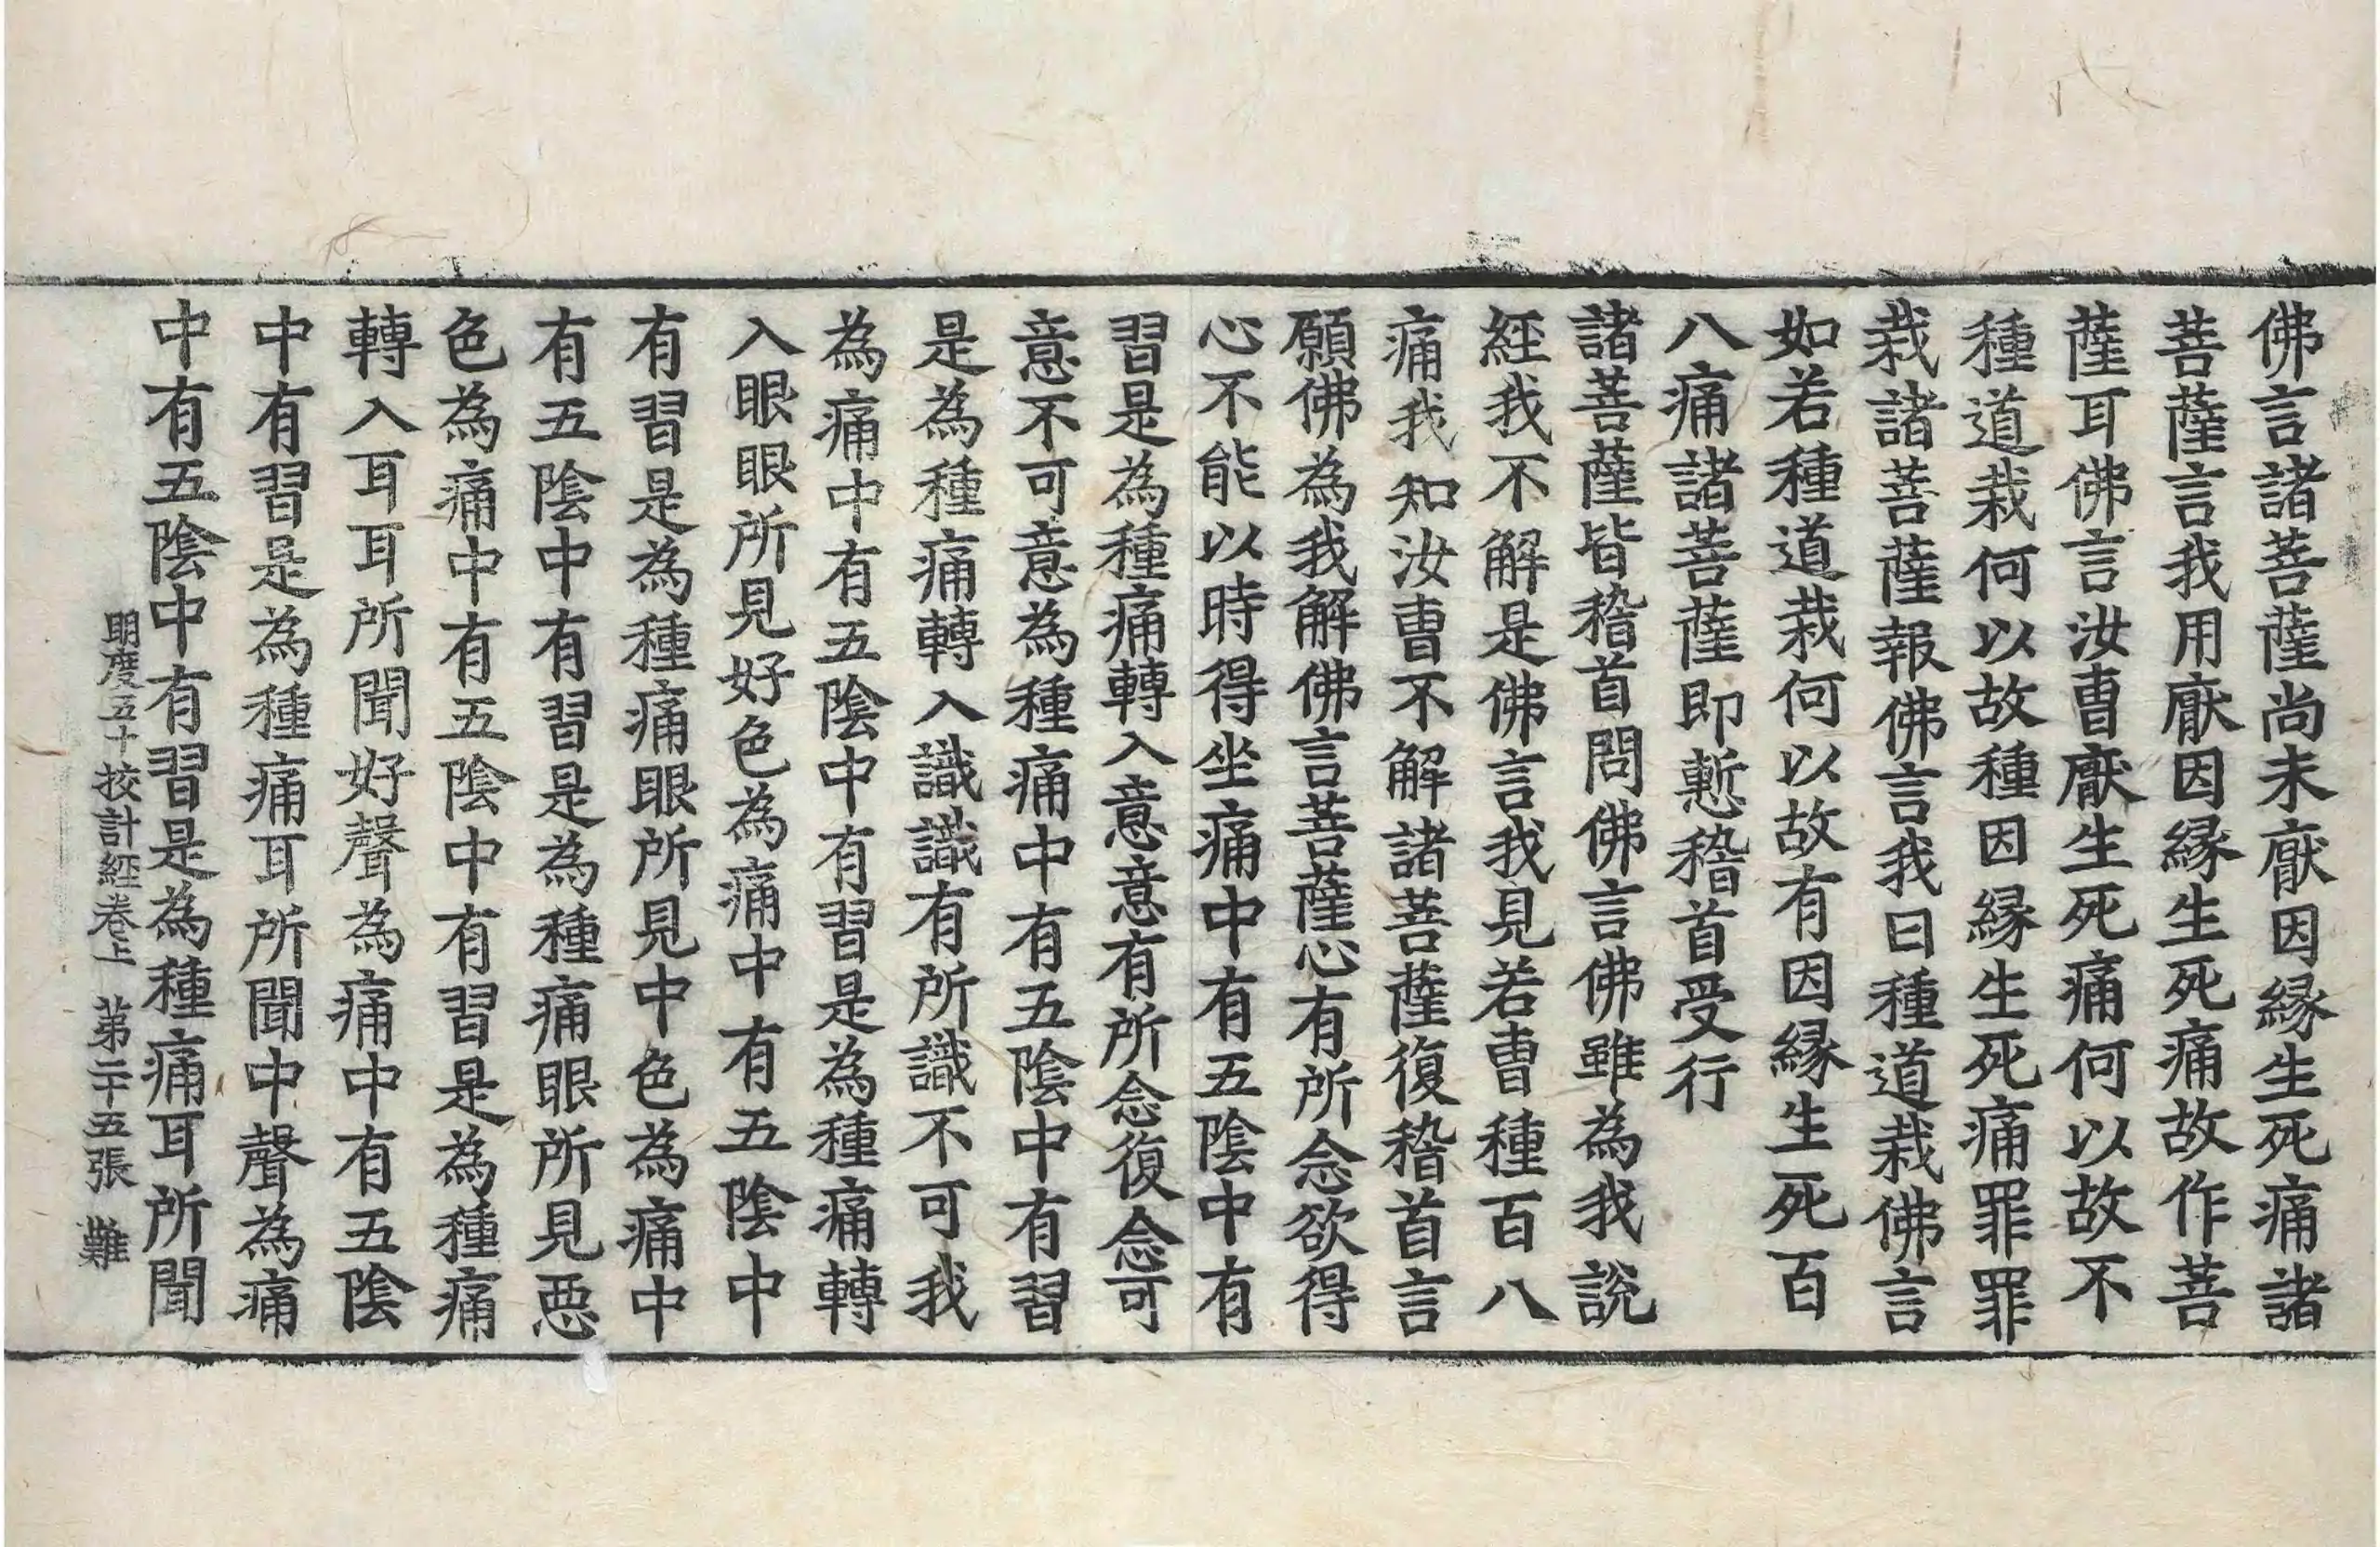 佛言諸菩薩尚未厭因縁生死痛諸
菩薩言我用厭因縁生死痛故作菩
薩耳佛言汝曹厭生死痛何以故不
種道栽何以故種因縁生死痛罪罪
栽諸菩薩報佛言我曰種道栽佛言
如若種道栽何以故有因縁生死百
八痛諸菩薩即慙稽首受行
諸菩薩皆稽首問佛言佛雖為我說
經我不解是佛言我見若曹種百八
痛我知汝曹不解諸菩薩復稽首言
願佛為我解佛言菩薩心有所念欲得
心不能以時得坐痛中有五陰中有
習是為種痛轉入意意有所念復念可
意不可意為種痛中有五陰中有習
是為種痛轉入識識有所識不可我
為痛中有五陰中有習是為種痛轉
入眼眼所見好色為痛中有五陰中
有習是為種痛眼所見中色為痛中
有五陰中有習是為種痛眼所見惡
色為痛中有五陰中有習是為種痛
轉入耳耳所聞好聲為痛中有五陰
中有習是為種痛耳所聞中聲為痛
中有五陰中有習是為種痛耳所聞
明度五十挍計經卷上 苐二十五張 難